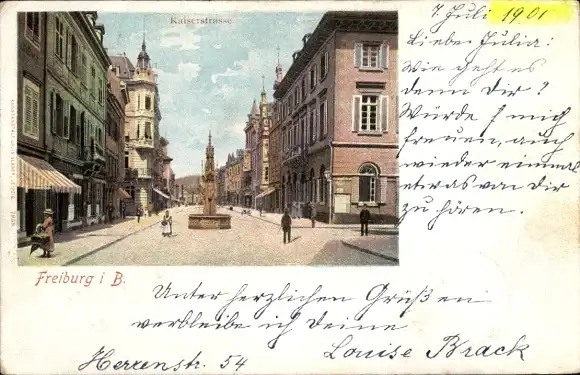 Kaiserstrasse
7 Juli 1901
Liebe Julia:
Wie geht es
denn Dir?
Würde mich
freuen, auch
wieder einmal
etwas von Dir
zu hören.
Freiburg i B.
Unter herzlichen Grüßen
verbleibe ich Deine
Louise Brack
Herrenstr. 54